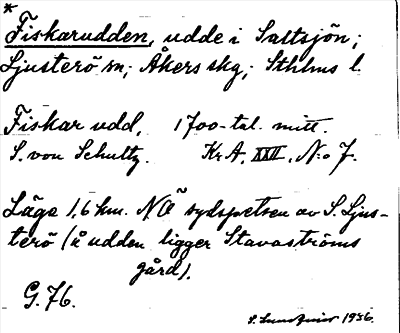 *
Fiskarudden, udde i Saltsjön;
Ljusterö sn; Åkers skg; Sthlms l.
Fiskar udd, 1700-tal. mitt.
S. von Schultz. Kr A, XXII, N:o 7.
Läge 1,6 km. NÖ sydspetsen av S. Ljus-
terö (å udden ligger Stavaströms
gård).
G. 76.
S. 1936.